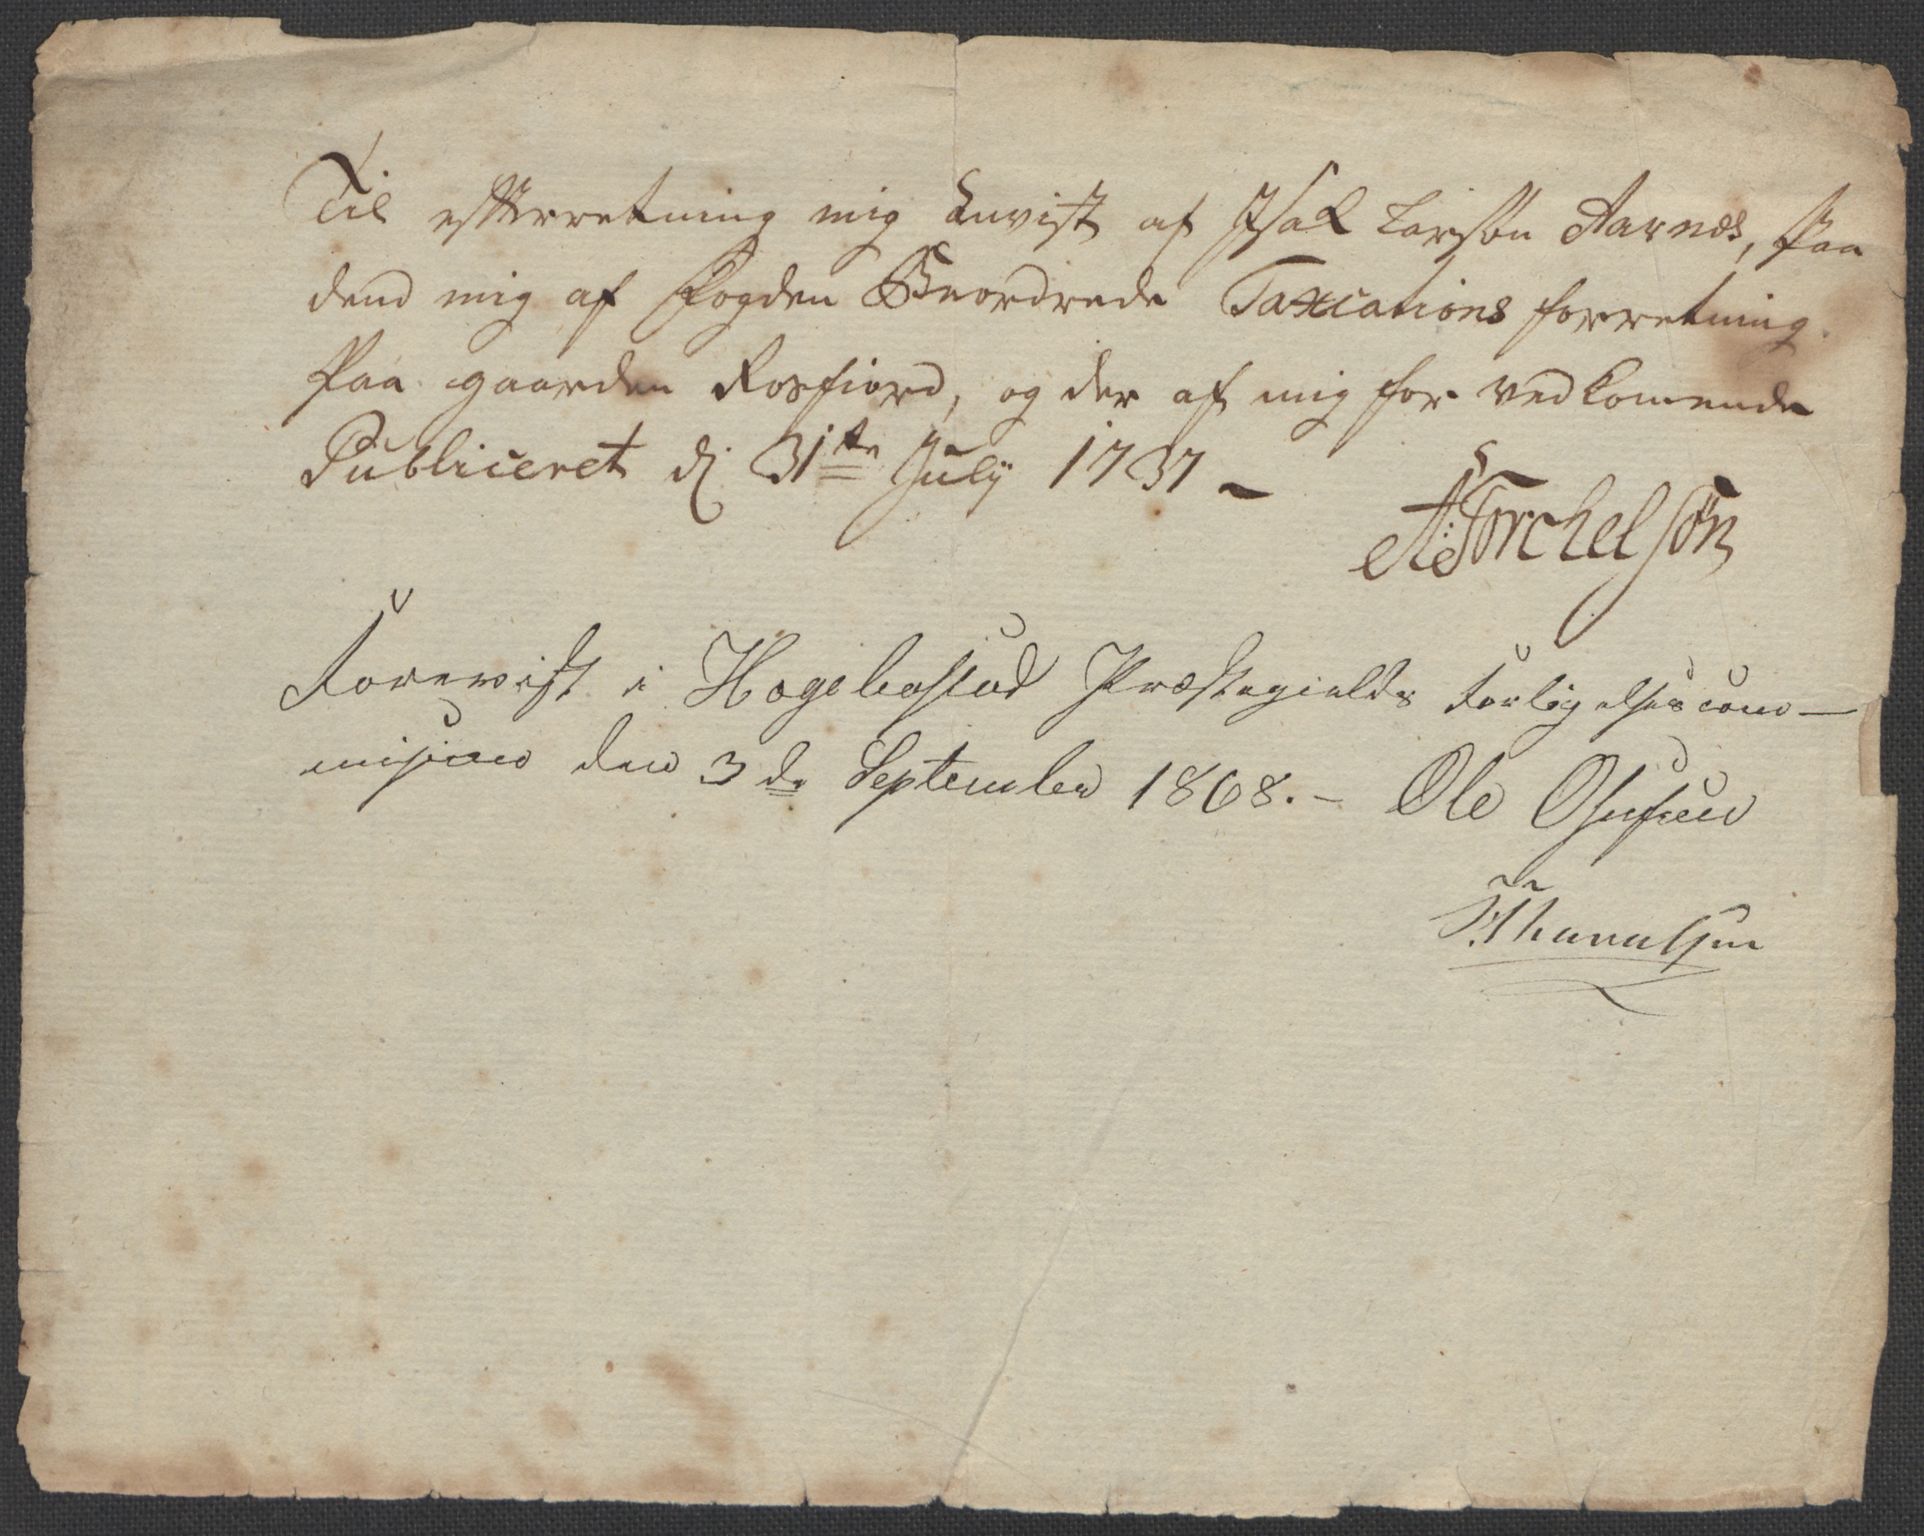 Til efterretning mig Anvist af Isak Larsøn Aarnæs, paa
dend mig af Fogden Beordrede Taxcations forretning
paa gaarden Rosfiord, og der af mig for vedkomende
Publiceret d. 31te July 1737 –
A: Torchelsøn
Forevist i Hægebostad Præstegields Forligelsescom–
mision den 3de September 1808. – Ole